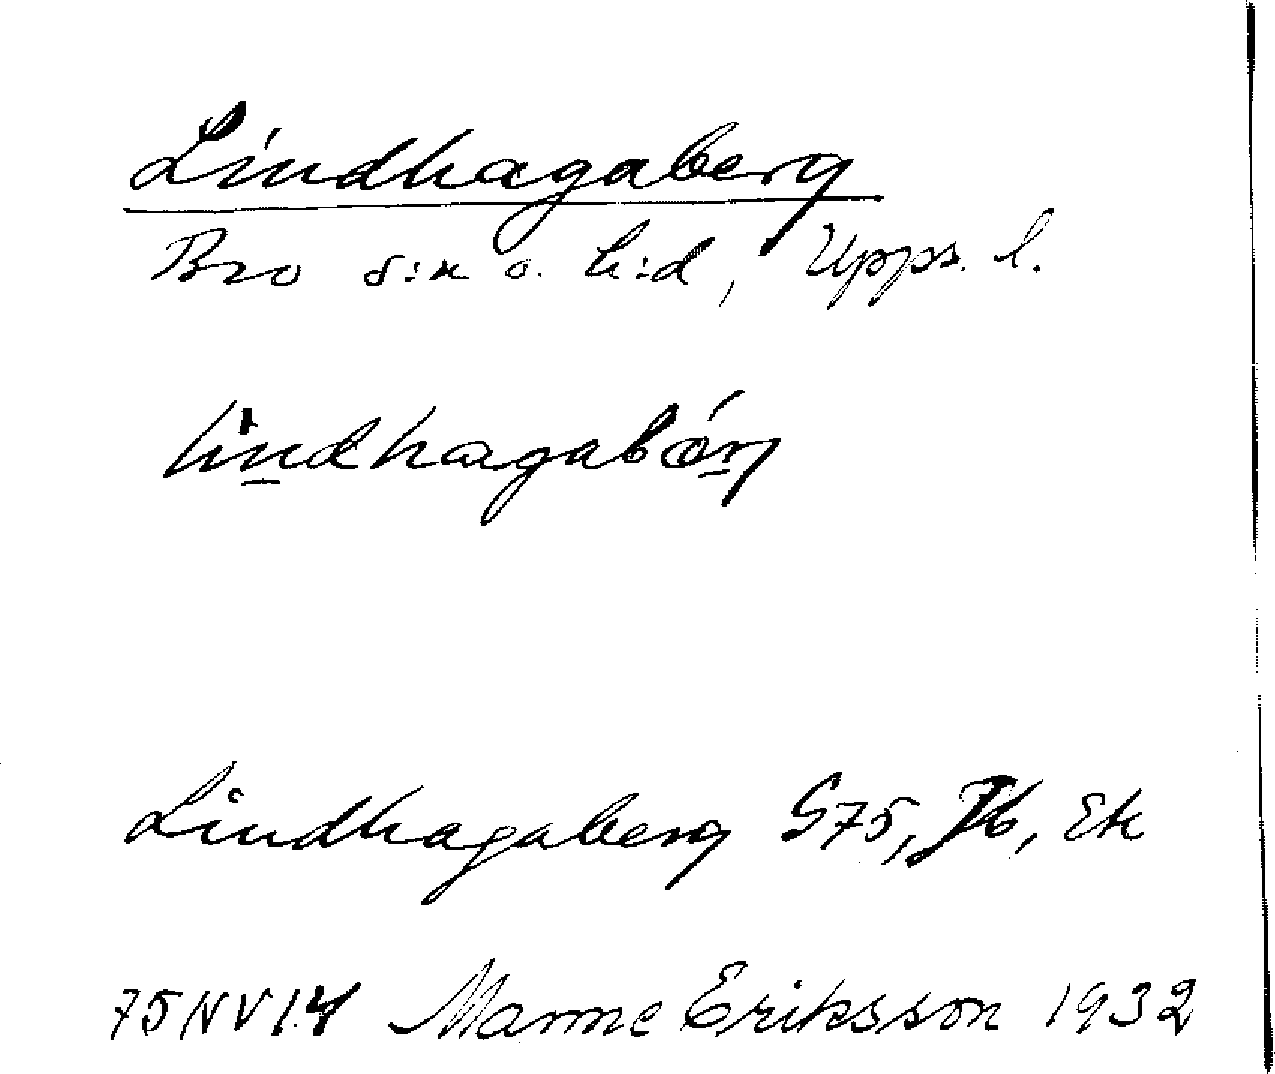 Lindhagaberg
Bro s:n o. h:d, Upps. l.
Lindhagaberg G75, Jb, Ek
75 NV 1.4 Manne Eriksson 1932